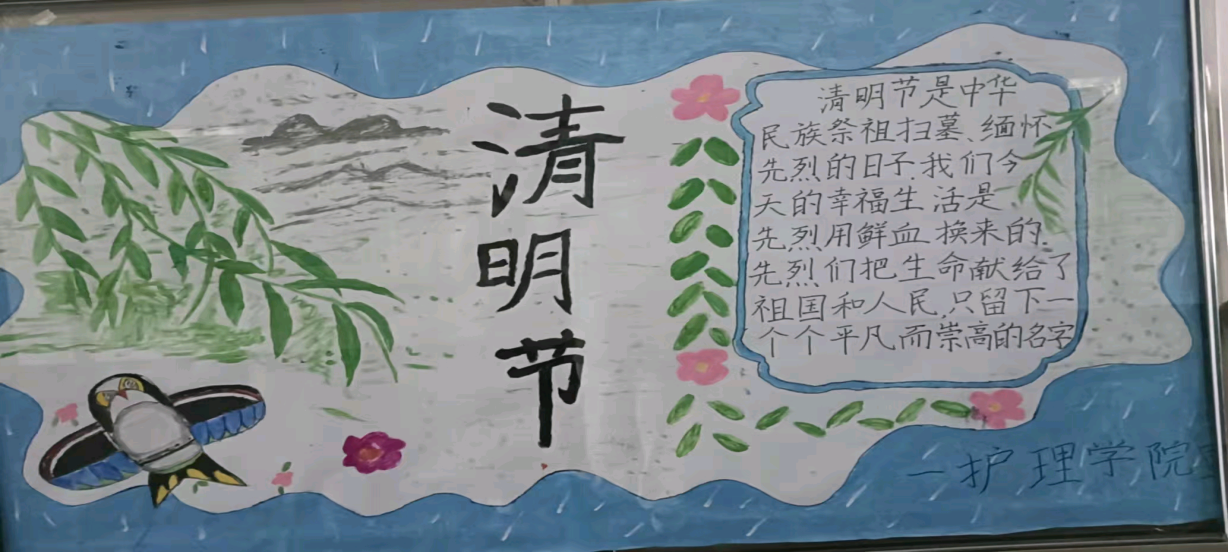 清明节
清明节是中华
民族祭祖扫墓、缅怀
先烈的日子.我们今
天的幸福生活是
先烈用鲜血换来的.
先烈们把生命献给了
祖国和人民,只留下一
个个平凡而崇高的名字
—护理学院